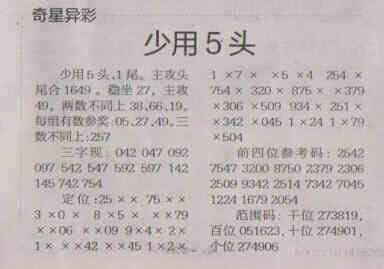 奇星异彩
少用5头
少用5头、1尾。主攻头
尾合1649。稳坐27,主攻
49,两数不同上38、66、19。
每组有数参奖:05、27、49。三
数不同上:257
三字现:042 047 092
097 542 547 592 597 142
145 742 754
定位:25×× 75××
3×0× 8×5× ××79
×06× ×09 9×4×2×
1×××42××45 1×2×
1×7××5×4 254×
754×320×875××379
×306×509 934×251×
×342×045 1×24 1×79
×504
前四位参考码:2542
7547 3200 8750 2379 2306
2509 9342 2514 7342 7045
1224 1679 2054
范围码:千位273819,
百位051623,十位274901,
个位274906